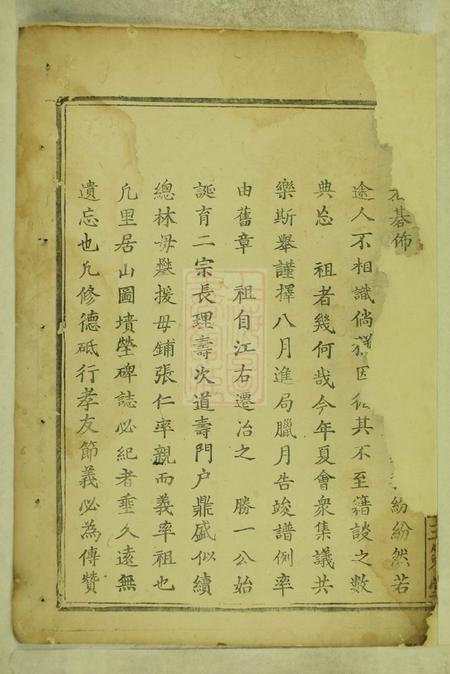 碁佈 紛紛然若
途人不相識倘 其不至籍談之數
典忘 祖者幾何哉今年夏會衆集議共
樂斯舉謹擇八月進局臘月告竣譜例率
由舊章 祖自江右遷冶之 勝一公始
誕育二宗長理壽次道壽門户鼎盛似續
總林毋攀援毋鋪張仁率親而義率祖也
凢里居山圖墳塋碑誌必紀者垂久遠無
遺忘也凢修德砥行孝友節義必為傳贊